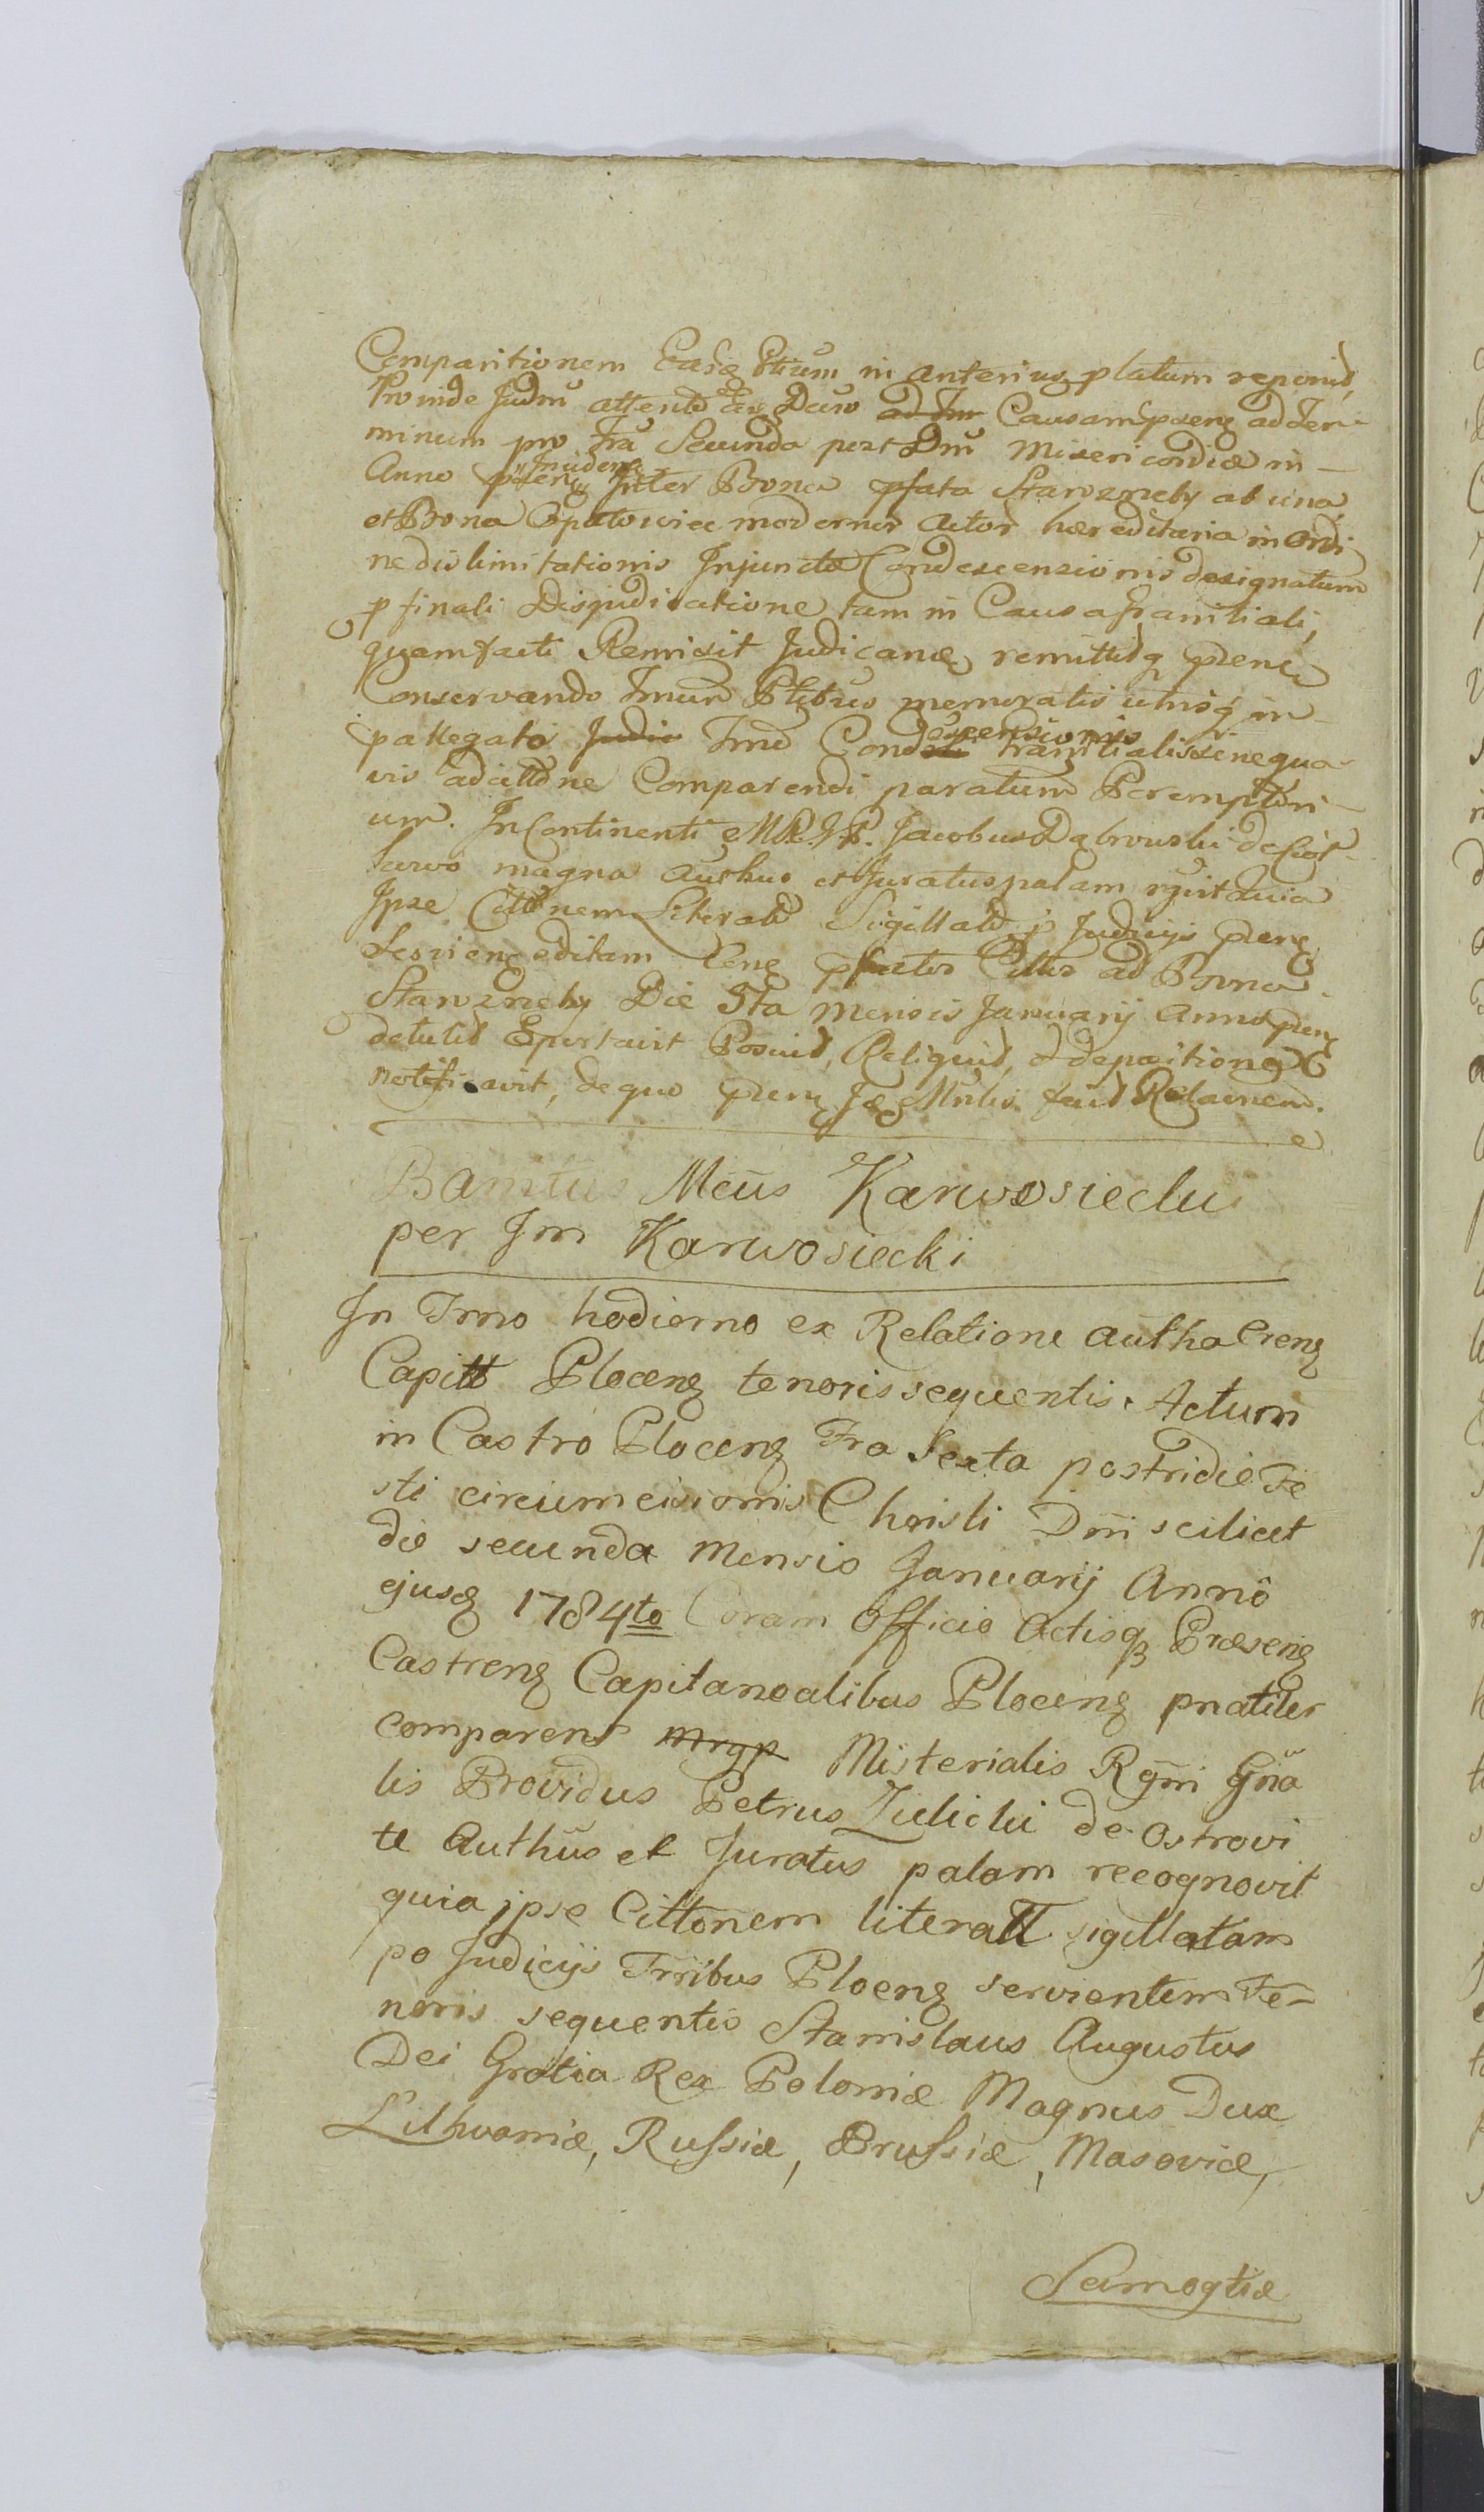 Comparitionem Easq Ptium in anterius platum reponit,
Proinde Judm attento eo Decro ad Tm Causam psens ad Ter-
minum pro Fra Secunda post Dm Misericordiæ in
Anno psen Incidens Inter Bona pfata Starozreby ab una,
et Bona Opatowiec modernor Actor hæreditaria in Ordi
ne dislimitationis Injuncta Condescensionis designatum
p finali Disjudicatione tam in Causa granitiali,
quam facti Remisit Judicanæ, remittitq psens
Conservando Tmum Ptibus memoratis utrisq in
pallegato Judic Tmo Condescensionis granitialis sine qua-
vis adcittone Comparendi paratum Peremptori-
um. In Continenti MRGP. Jacobus Dąbrowski de
magna Authus et Juratus palam rgvit quia
Ipse Cittonem Literatt Sigillatt p Judicijs psens
Serviens editam Cens pfator Cittor ad Bona
Starozreby Die 3tia Mensis Januarij Anno psen
detulit Eportavit Posuit, Reliquit, et depositione
notificavit, de quo psens Mnlis fecit Relaonem.
Banitus Meus Karwosiecki
per Jm Karwosiecki
In Trmo hodierno ex Relatione autha Crens
Capitt Plocens tenoris sequentis. Actum
in Castro Plocens Fra Sexta postridie Fe
sti circumcisionis Christi Dni scilicet
die secunda Mensis Januarij Annô
ejusq 1784to Coram Officio Actisq Præsens
Castrens Capitanealibus Plocens pnaliter
comparens Mrgp Misterialis Rgni Gna
lis Providus Petrus Zulicki de Ostrovi
te Authus et Juratus palam recognovit
quia jpse Cittonem literatt sigillatam
po Judicijs Trribus Plocens servientem Te-
noris sequentis Stanislaus Augustus
Dei Gratia Rex Poloniæ Magnus Dux
Lithvaniæ, Russiæ, Prussiæ, Masoviæ,
Samogtiæ